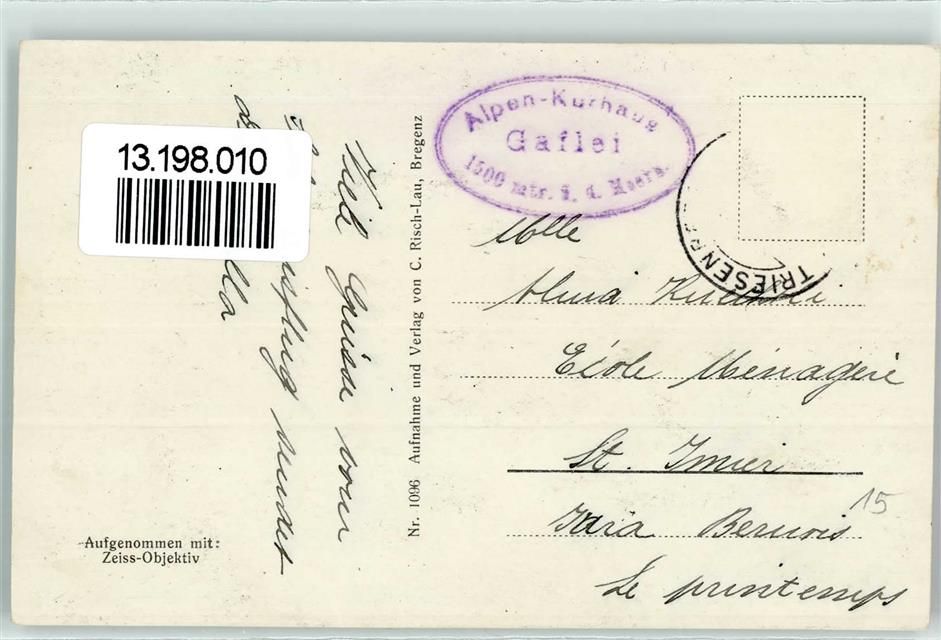 13.198.010
Viel Grüsse vom
sendet
Aufgenommen mit:
Zeiss-Objektiv
Nr. 1096 Aufnahme und Verlag von C. Risch-Lau, Bregenz
Alpen-Kurhaus
Gaflei
1500 mtr. ü. d. Meere.
TRIESENB
Mlle
École Ménagère
St. Imier
Jura Bernois
Le printemps
15